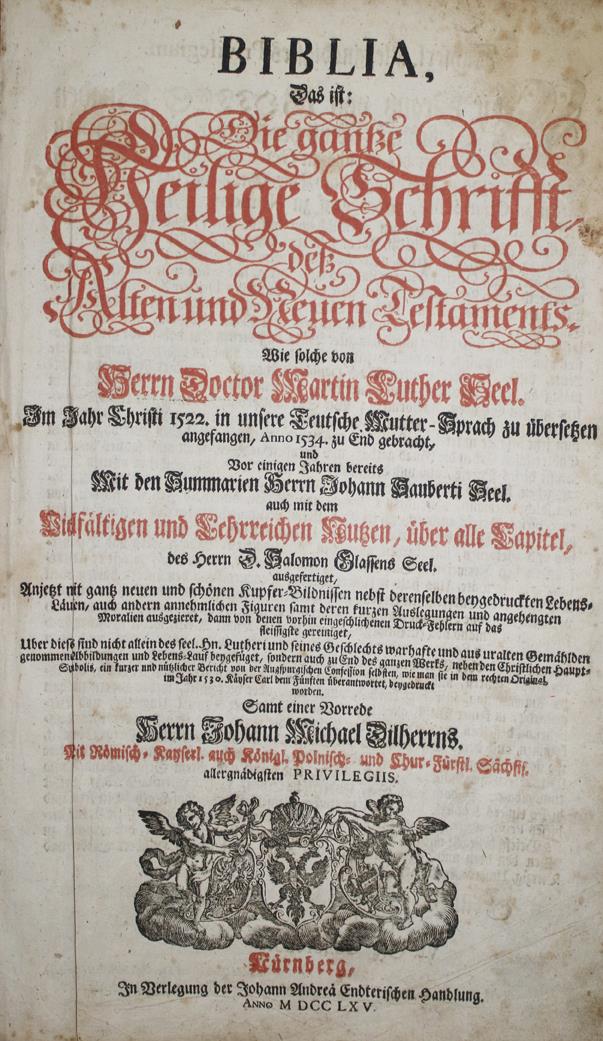 BIBLIA,
Das ist:
Die gantze
Heilige Schrifft,
deß
Alten und Neuen Testaments.
Wie solche von
Herrn Doctor Martin Luther Seel.
Im Jahr Christi 1522. in unsere Teutsche Mutter-Sprach zu übersetzen
angefangen, Anno 1534. zu End gebracht,
und
Vor einigen Jahren bereits
Mit den Summarien Herrn Johann Sauberti Seel.
auch mit dem
Vielfältigen und Lehrreichen Nutzen, über alle Capitel,
des Herrn D. Salomon Glassens Seel.
ausgefertiget,
Anjetzt mit gantz neuen und schönen Kupfer-Bildnissen nebst derenselben beygedruckten Lebens-
Läuffen, auch andern annehmlichen Figuren samt deren kurzen Auslegungen und angehengten
Moralien ausgezieret, dann von denen vorhin eingeschlichenen Druck-Fehlern auf das
fleissigste gereiniget,
Uber dieß sind nicht allein des seel. Hn. Lutheri und seines Geschlechts warhafte und aus uralten Gemählden
genommene Abbildungen und Lebens-Lauf beygefüget, sondern auch zu End des ganzen Werks, neben den Christlichen Haupt-
Symbolis, ein kurzer und nützlicher Bericht von der Augspurgischen Confession selbsten, wie man sie in dem rechten Original,
im Jahr 1530. Käyser Carl dem Fünften überantwortet, beygedruckt
worden.
Samt einer Vorrede
Herrn Johann Michael Dilherrns.
Mit Römisch-Kayserl. auch Königl. Polnisch- und Chur-Fürstl. Sächss.
allergnädigsten PRIVILEGIIS.
Nürnberg,
In Verlegung der Johann Andreä Endterischen Handlung.
ANNO M DCC LXV.